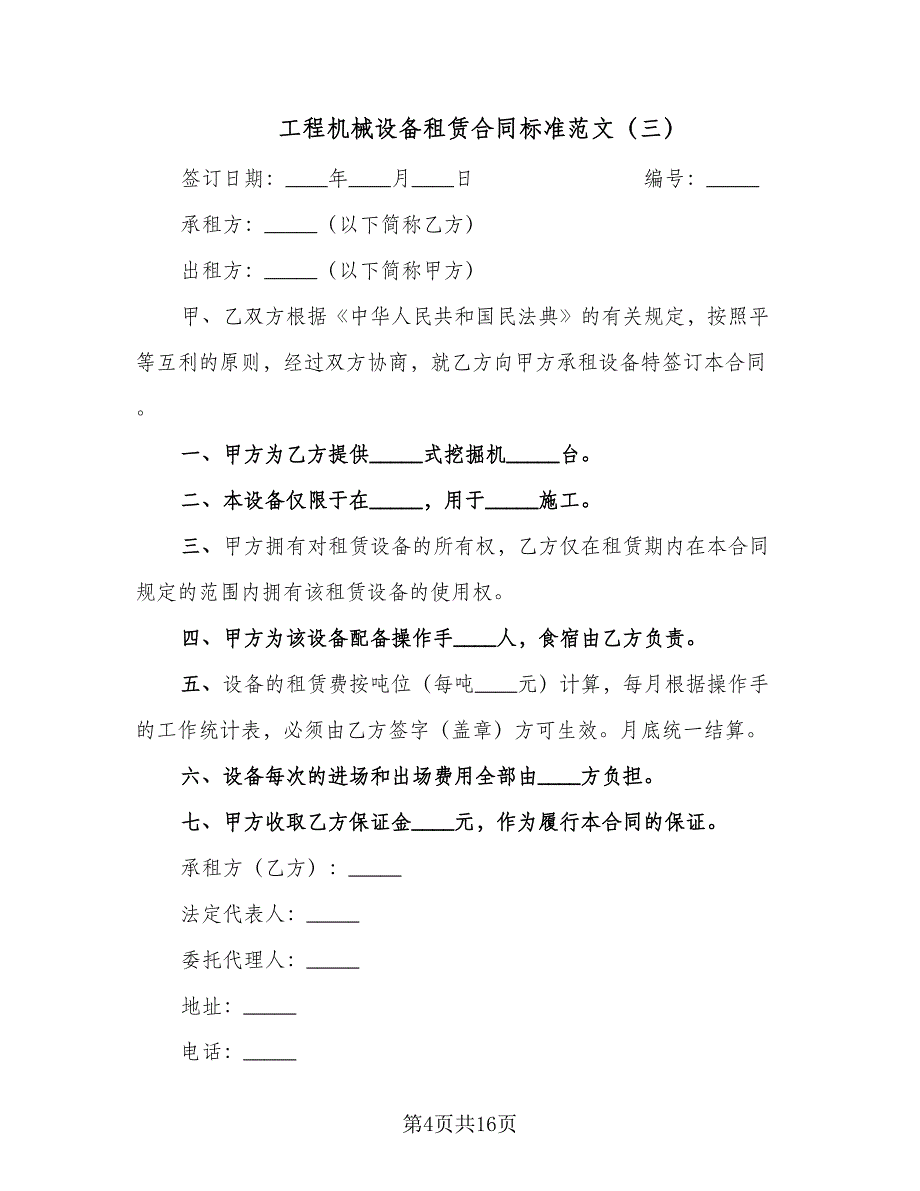 工程机械设备租赁合同标准范文（三）
签订日期：____年____月____日 编号：_____
承租方：_____（以下简称乙方）
出租方：_____（以下简称甲方）
甲、乙双方根据《中华人民共和国民法典》的有关规定，按照平
等互利的原则，经过双方协商，就乙方向甲方承租设备特签订本合同
。
一、甲方为乙方提供_____式挖掘机_____台。
二、本设备仅限于在_____，用于_____施工。
三、甲方拥有对租赁设备的所有权，乙方仅在租赁期内在本合同
规定的范围内拥有该租赁设备的使用权。
四、甲方为该设备配备操作手____人，食宿由乙方负责。
五、设备的租赁费按吨位（每吨____元）计算，每月根据操作手
的工作统计表，必须由乙方签字（盖章）方可生效。月底统一结算。
六、设备每次的进场和出场费用全部由____方负担。
七、甲方收取乙方保证金____元，作为履行本合同的保证。
承租方（乙方）：_____
法定代表人：_____
委托代理人：_____
地址：_____
电话：_____
第4页共16页